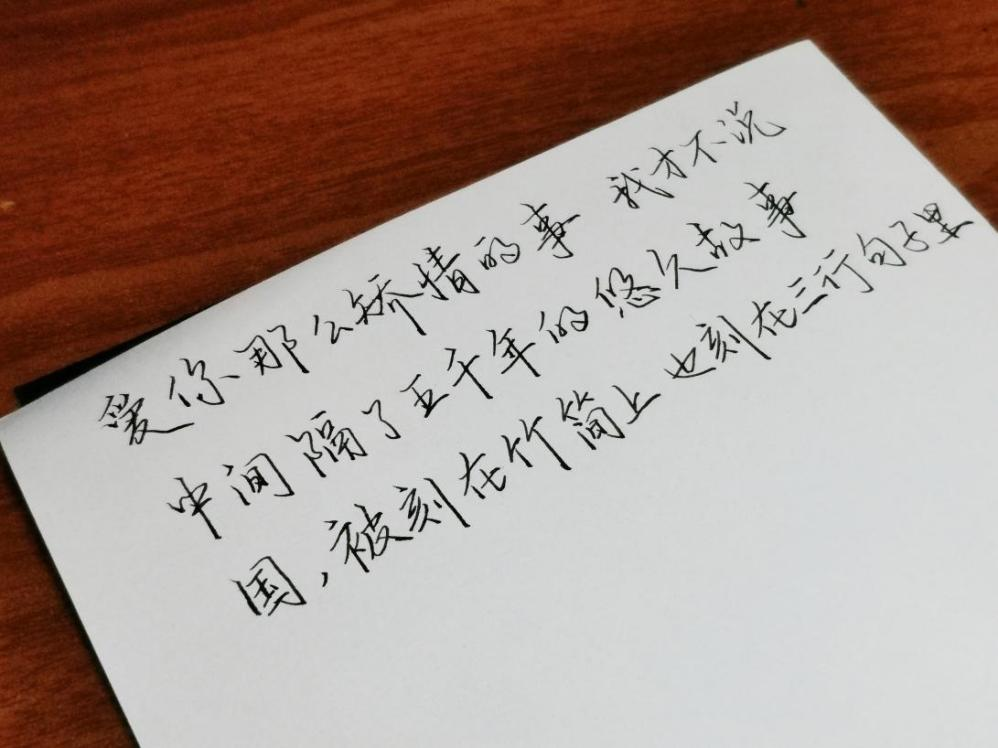 爱你那么矫情的事 我才不说
中间隔了五千年的悠久故事
国,被刻在竹简上 也刻在三行句子里